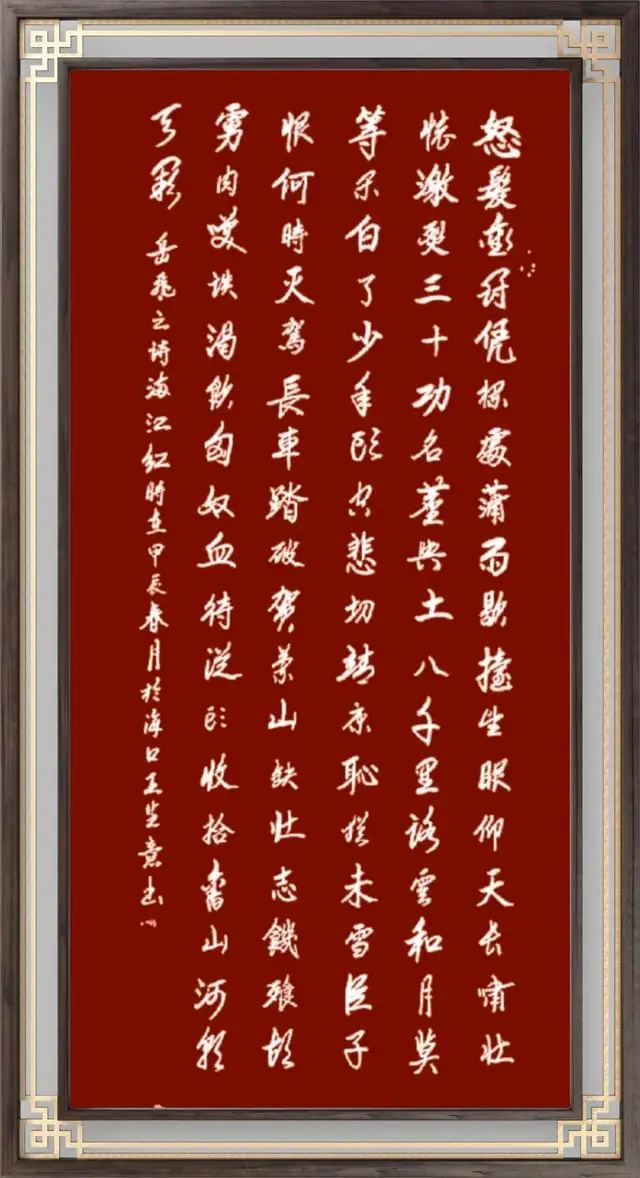 怒髮衝冠凭欄處瀟雨歇擡望眼仰天长嘯壯
懷激烈三十功名塵與土八千里路雲和月莫
等閑白了少年头空悲切靖康恥猶未雪臣子
恨何時灭駕長車踏破賀蘭山缺壯志饑餐胡
虜肉笑談渴飲匈奴血待從头收拾舊山河朝
天闕 岳飛之詩滿江紅時在甲辰春月於海口王意书